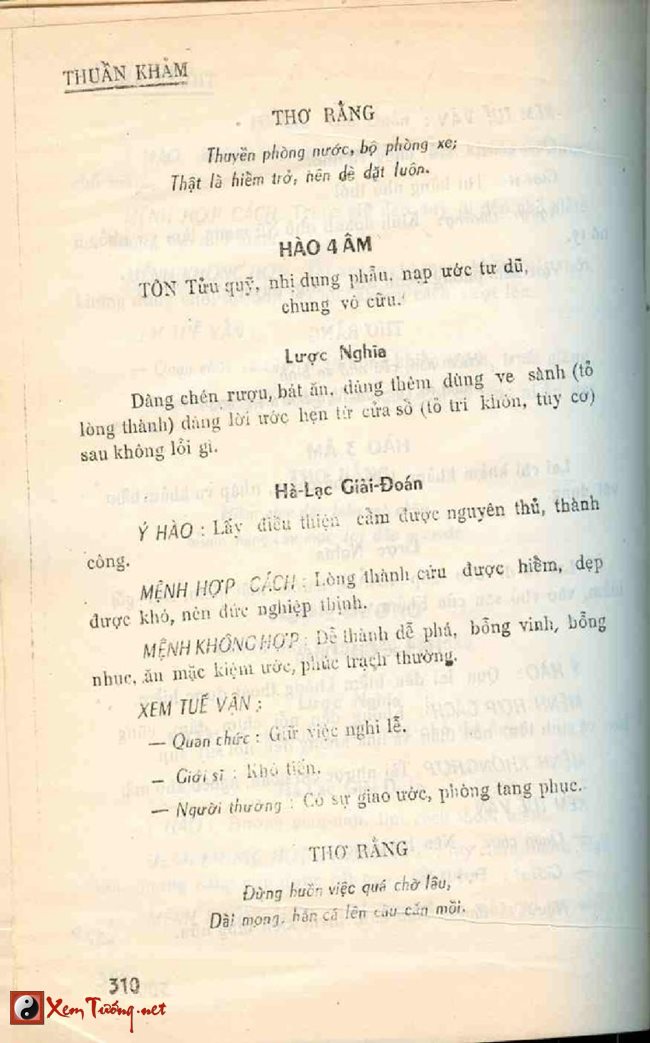 THUẦN KHẢM
THƠ RẰNG
Thuyền phòng nước, bộ phòng xe;
Thật là hiểm trở, nên dè dặt luôn.
HÀO 4 ÂM
TÔN Tửu quỹ, nhị dụng phẫu, nạp ước tự dũ,
chung vô cữu.
Lược Nghĩa
Dâng chén rượu, bát ăn, dâng thêm dùng ve sành (tỏ
lòng thành) dâng lời ước hẹn từ cửa sổ (tỏ trí khôn, tùy cơ)
sau không lỗi gì.
Hà-Lạc Giải-Đoán
Ý HÀO : Lấy điều thiện cảm được nguyên thủ, thành
công.
MỆNH HỢP CÁCH : Lòng thành cứu được hiểm, dẹp
được khó, nên đức nghiệp thịnh.
MỆNH KHÔNG HỢP : Dễ thành dễ phá, bỗng vinh, bỗng
nhục, ăn mặc kiệm ước, phúc trạch thường.
XEM TUẾ VẬN :
— Quan chức : Giữ việc nghi lễ.
— Giới sĩ : Khó tiến.
— Người thường : Có sự giao ước, phòng tang phục.
THƠ RẰNG
Đừng buồn việc quá chờ lâu,
Dài mong, hẳn cá lên câu cắn mồi.
310
XemTướng.net